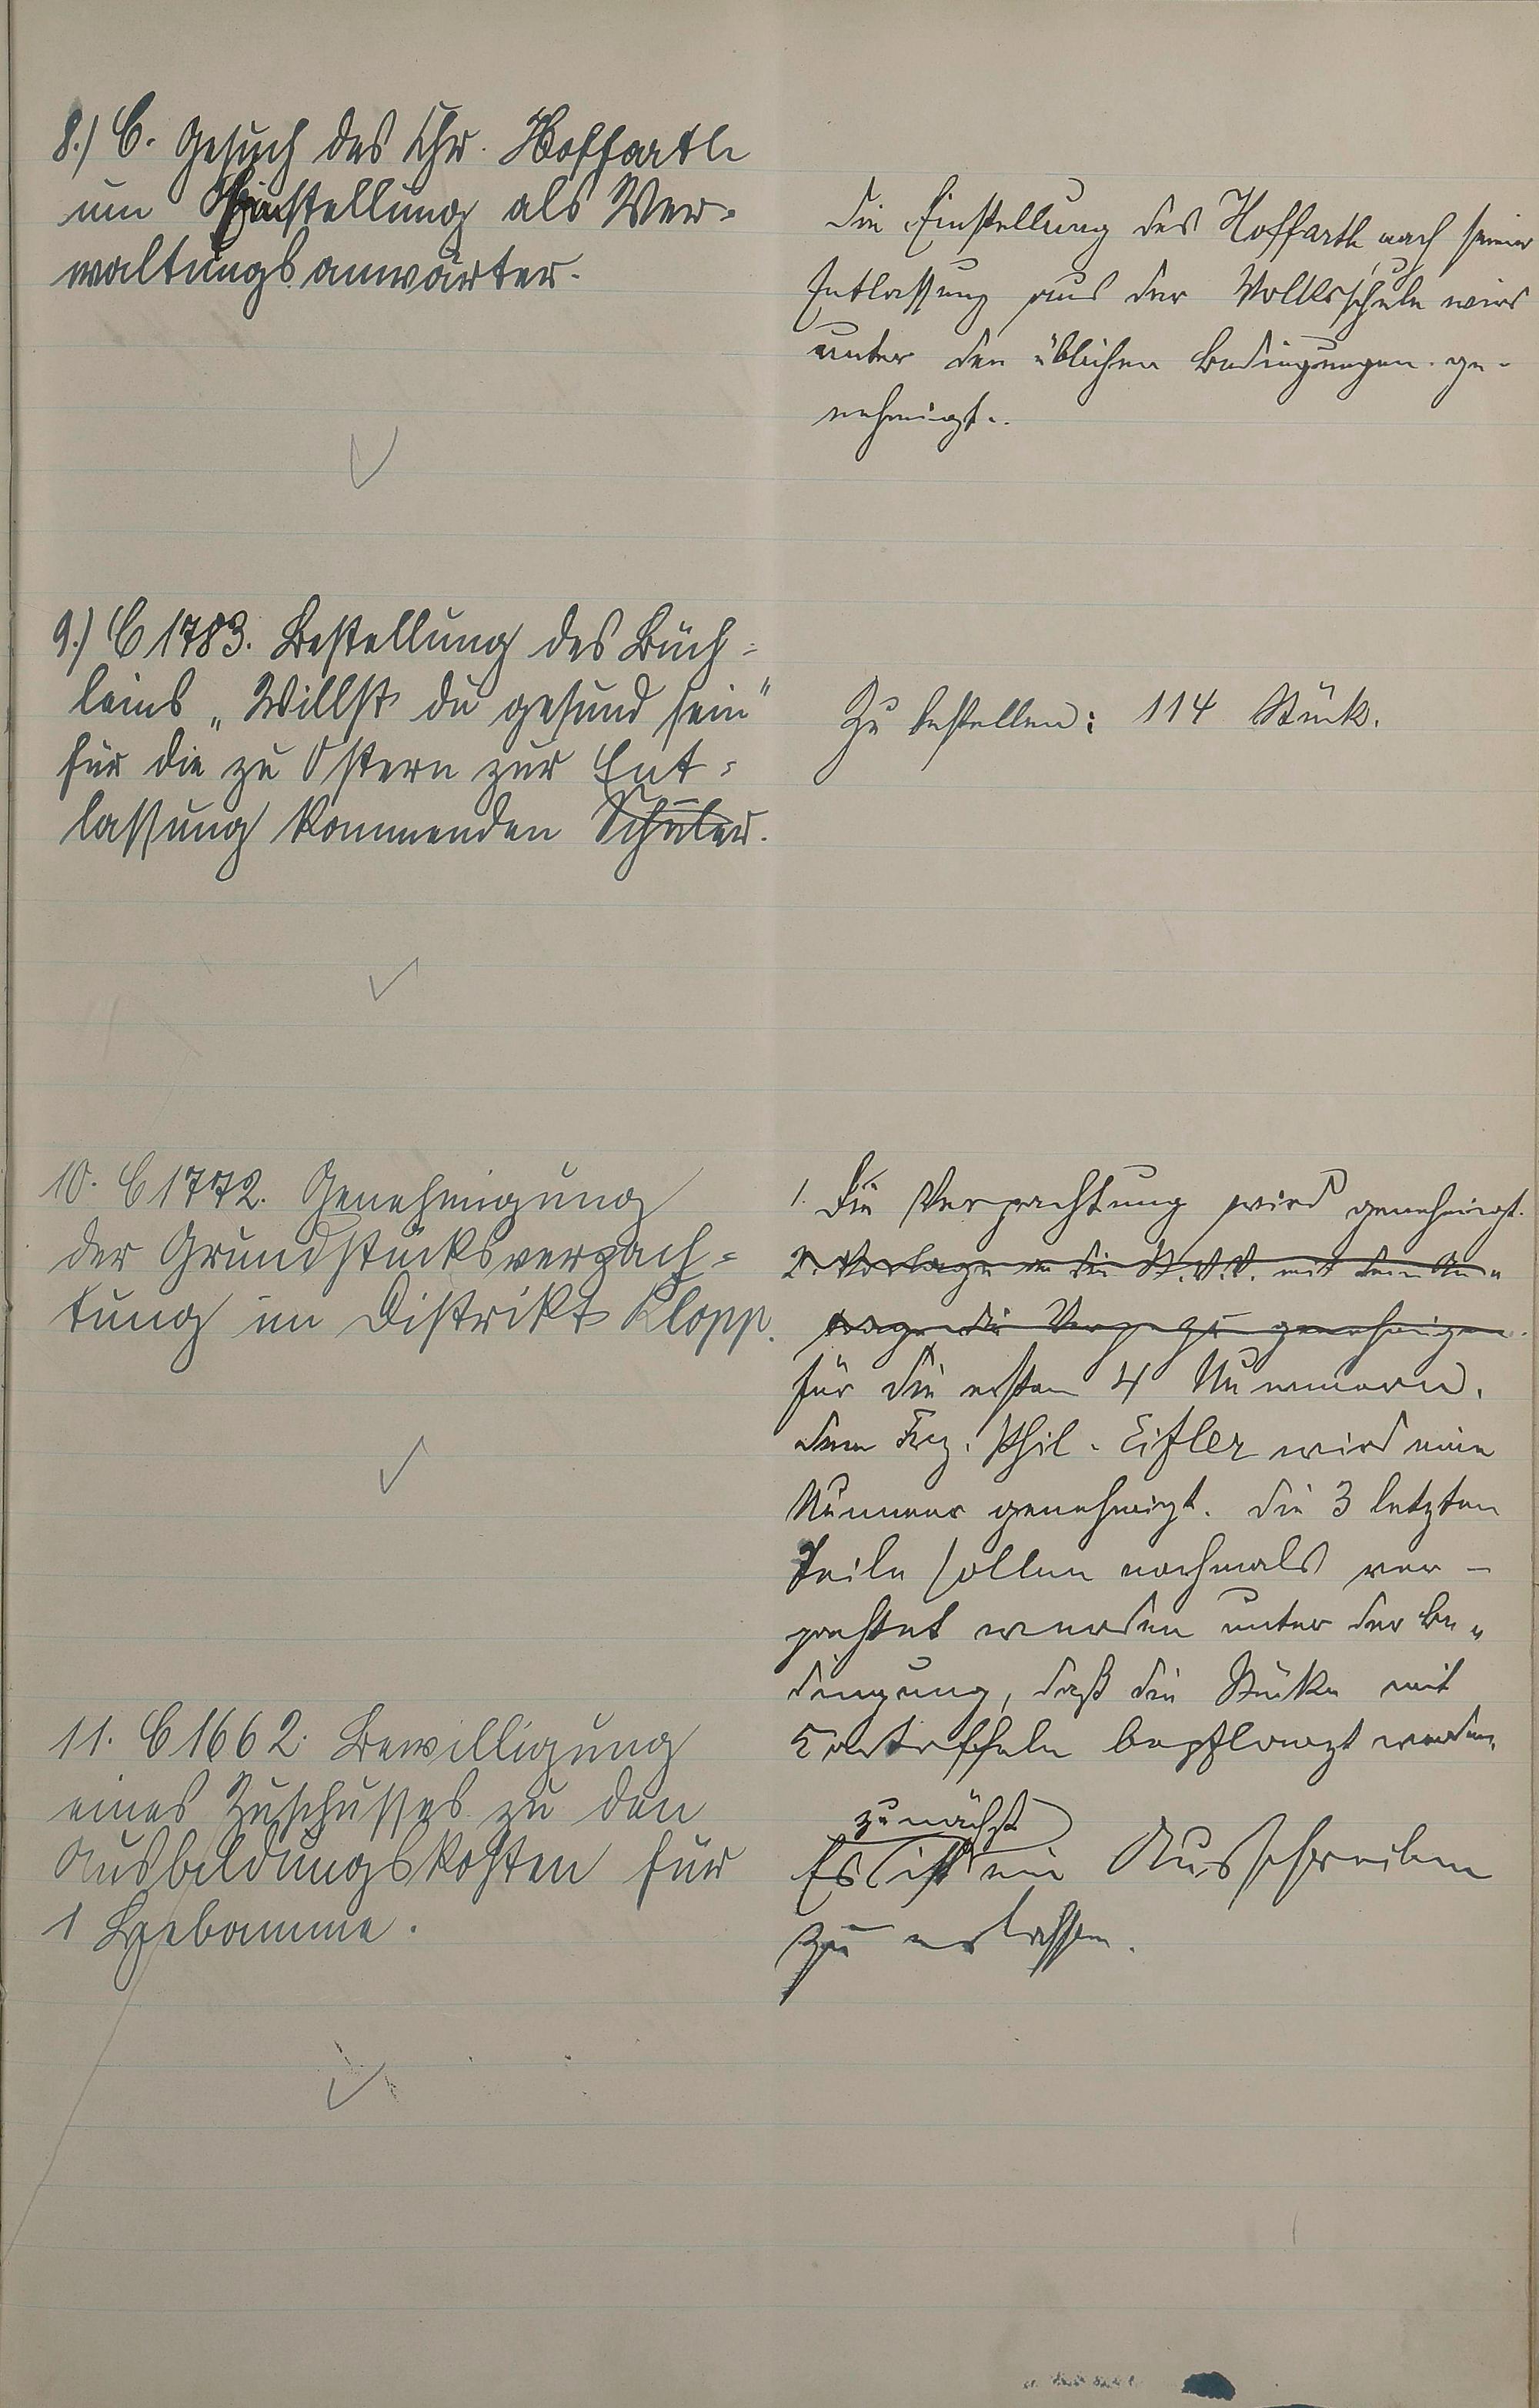 8.) C. Gesuch des Chr. Hoffarth
um Einstellung als Ver-
waltungsanwärter.
Die Einstellung des Hoffarth nach seiner
Entlassung aus der Volksschule wird
unter den üblichen Bedingungen ge-
nehmigt.
9.) C 1783. Bestellung des Büch-
leins „Willst du gesund sein"
für die zu Ostern zur Ent-
lassung kommenden Schüler.
Zu bestellen: 114 Stück.
10. C 1772. Genehmigung
der Grundstücksverpach-
tung im Distrikt Klopp.
1. Die Verpachtung wird genehmigt.
2. Vorlage an die St.V.V. mit dem An-
trage die Verp. zu genehmigen.
für die ersten 4 Nummern.
dem Frz. Phil. Eifler wird eine
Nummer genehmigt. Die 3 letzten
Teile sollen nochmals ver-
pachtet werden unter der Be-
dingung, daß die Stücke mit
Kartoffeln bepflanzt werden.
11. C 1662. Bewilligung
eines Zuschusses zu den
Ausbildungskosten für
1 Hebamme.
zunächst
Es ist ein Ausschreiben
zu erlassen.